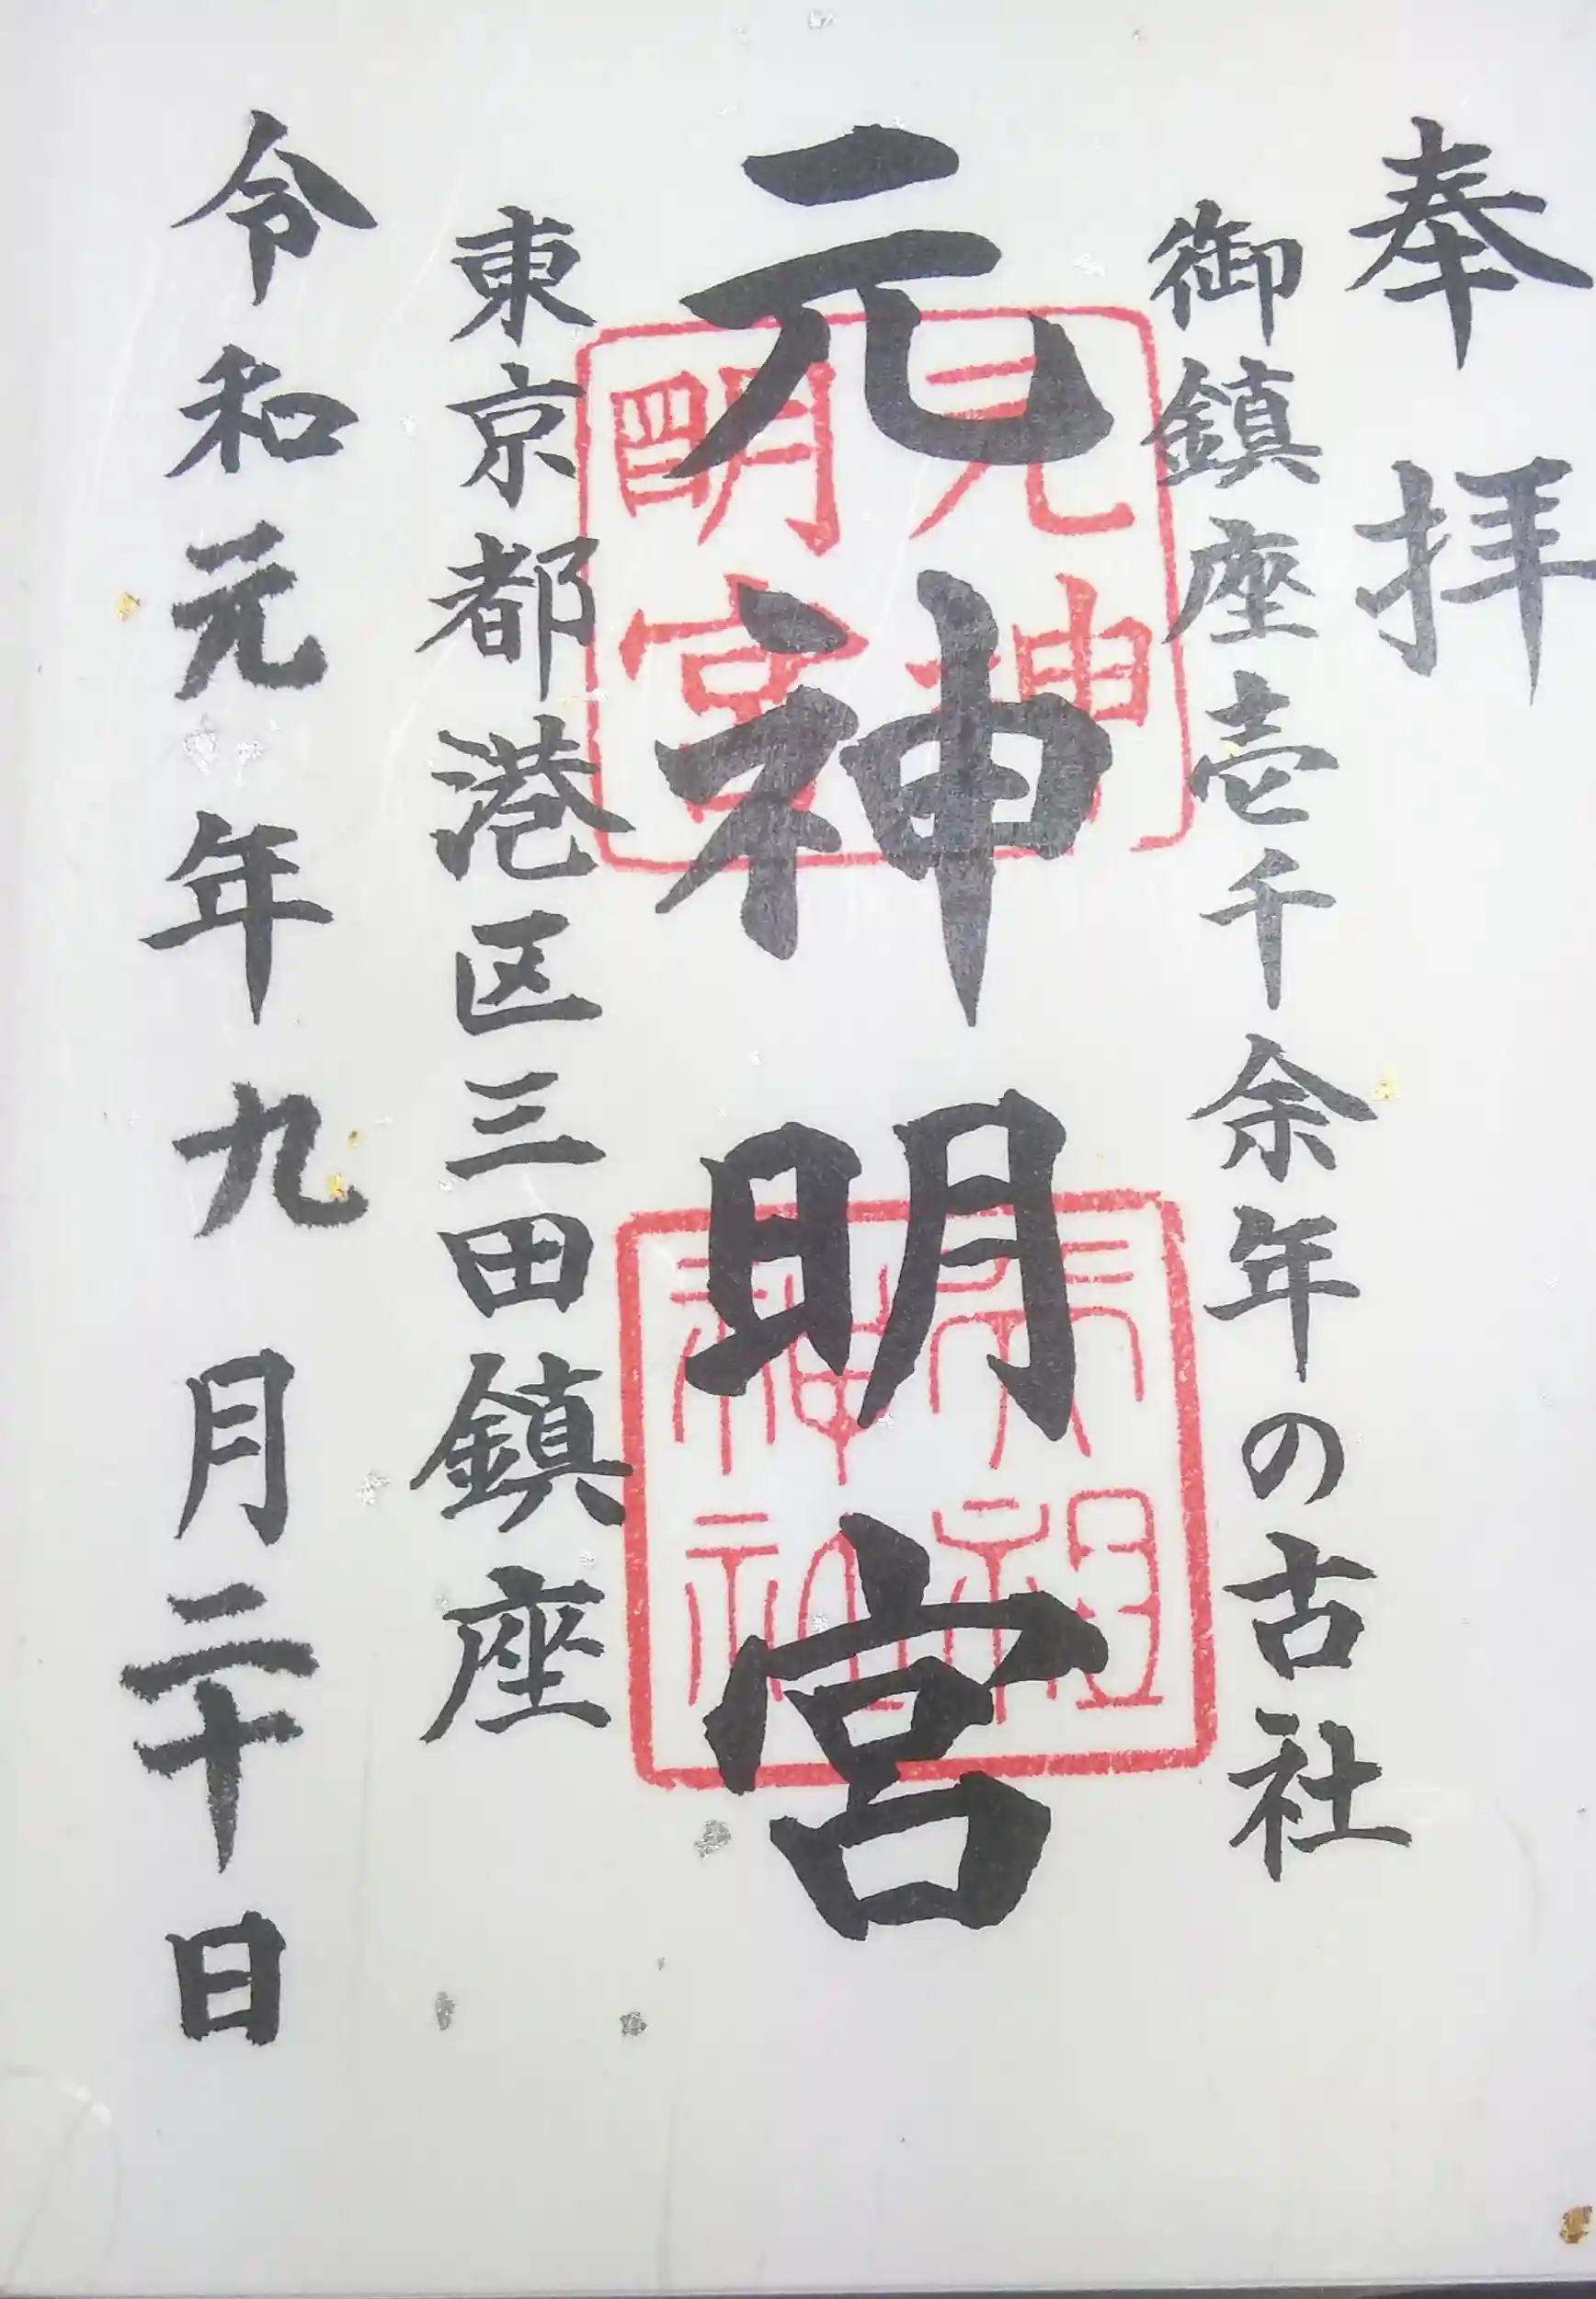 奉拝
御鎮座壱千余年の古社
元神明宮
東京都港区三田鎮座
令和元年九月二十日
元神
明宮
天祖
神社